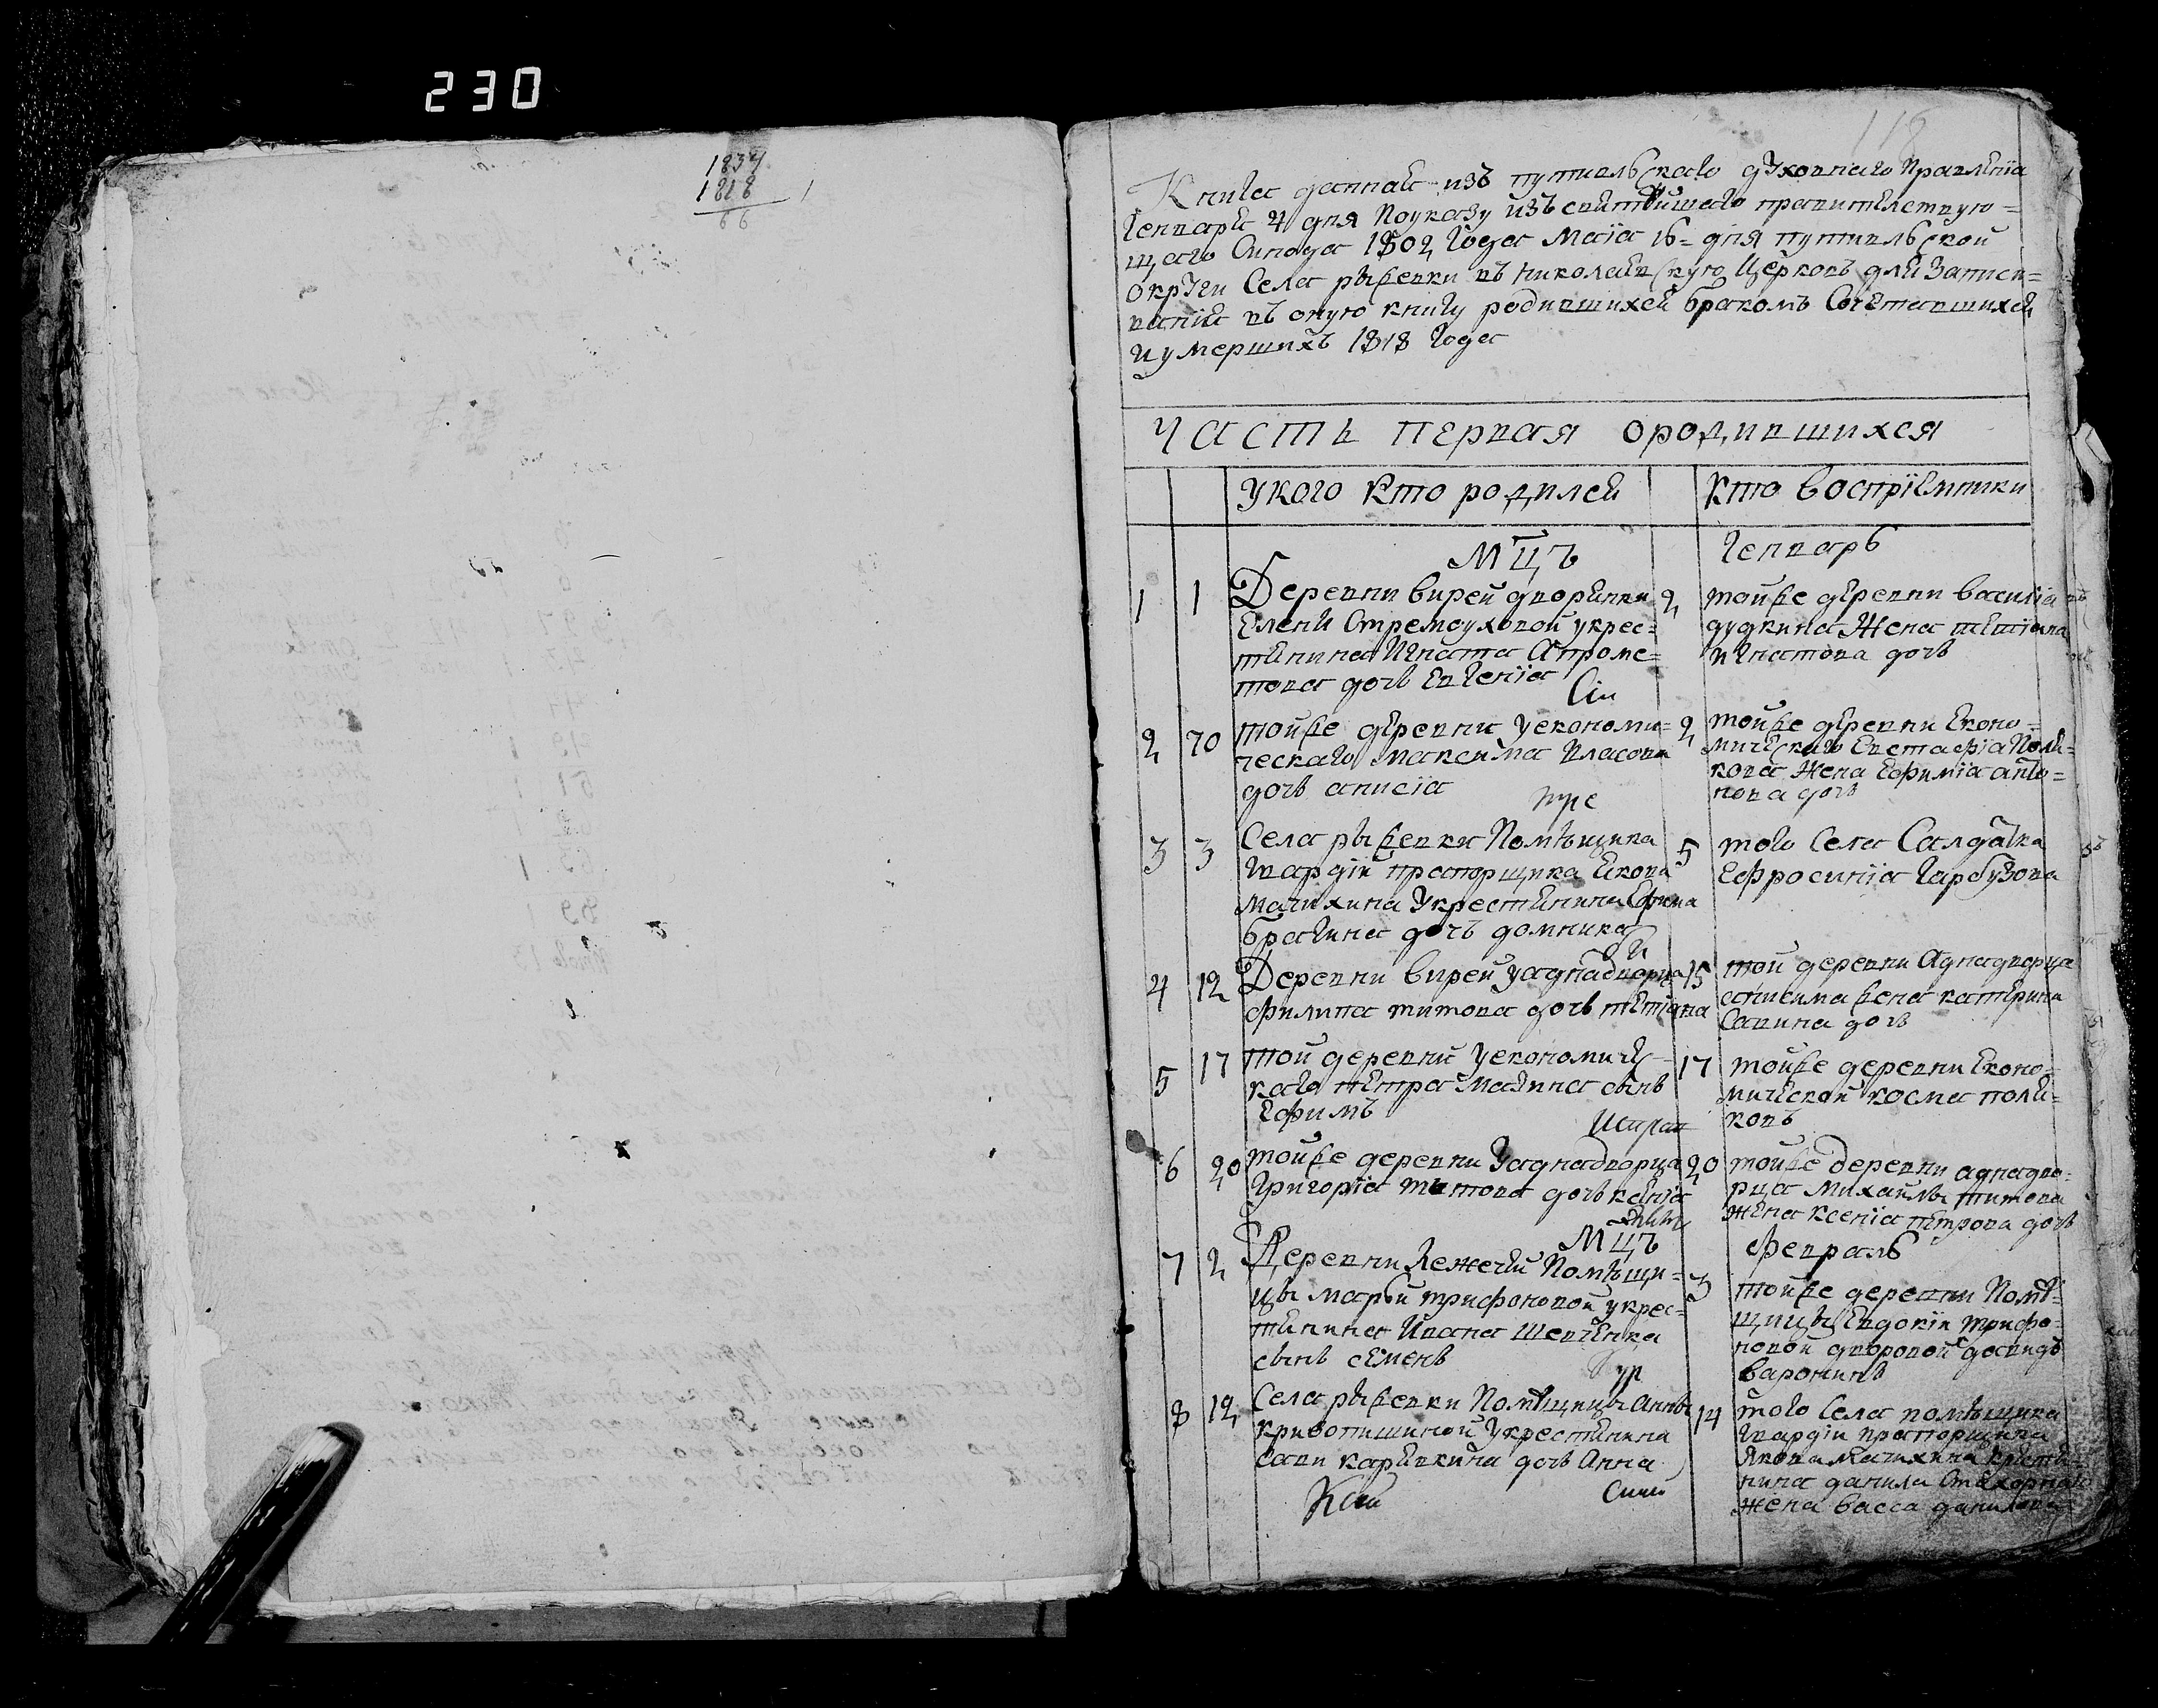 230
1834
1818
66
118
Книга данная изъ путивльскаго духовнаго правленiя
генваря 4 дня поуказу изъ святейшаго правителствую=
щаго Синода 1802 года маiа 16= дня путивльской
округи Села рыжевки въ николаевскую церковь для записи=
ванiя въ оную книгу родившихся бракомъ Сочетавшихся
иумершихъ 1818 года
часть первая ородившихся
укого кто родился
кто воспрiемники
мцъ
генварь
1 1 Деревни вирей дворянки
Елены Стремоуховой укрес=
тянина Игната
това дочь Евгенiя
2 тойже деревни василiя
дудкина жена тетiана
игнатова дочь
2 10 тойже деревни уекономи=
ческаго максима власова
дочь анисiя
2 тойже деревни Еконо=
мическаго Евстафiа Поля=
кова жена Ефимiа анто=
нова дочь
3 3 Села рыжевки Помѣщика
гвардiи прапорщика Якова
мачихина укрестянина
брагина дочь домника
5 того Села Салдатка
Ефросинiа гарбузова
4 12 Деревни вирей уаднадворца
филипа титова дочь тетiана
15 той деревни аднадворца
анисима жена катерина
Савина дочь
5 17 той деревни уекономичес=
каго петра мазина сынъ
Ефимъ
17 тойже деревни Еконо=
мической косма поля=
ковъ
6 20 тойже деревни уаднадворца
григорiа титова дочь ксенiа
20 тойже деревни аднадво=
рца михайлы титова
жена ксенiа петрова дочь
мцъ
февраль
7 2 Деревни Лежечи Помѣщи=
цы марьи трифоновой укрес=
тянина Ивана шевченка
сынъ семенъ
3 тойже деревни Помѣ=
щицы Евдокiи трифо=
новой дворовой
8 12 Села рыжевки Помѣщицы анны
кривопишиной укрестянина
савы дочь анна
14 того Села помѣщика
гвардiи прапорщика
Якова мачихина крестя=
нина данила
жена васса данилова